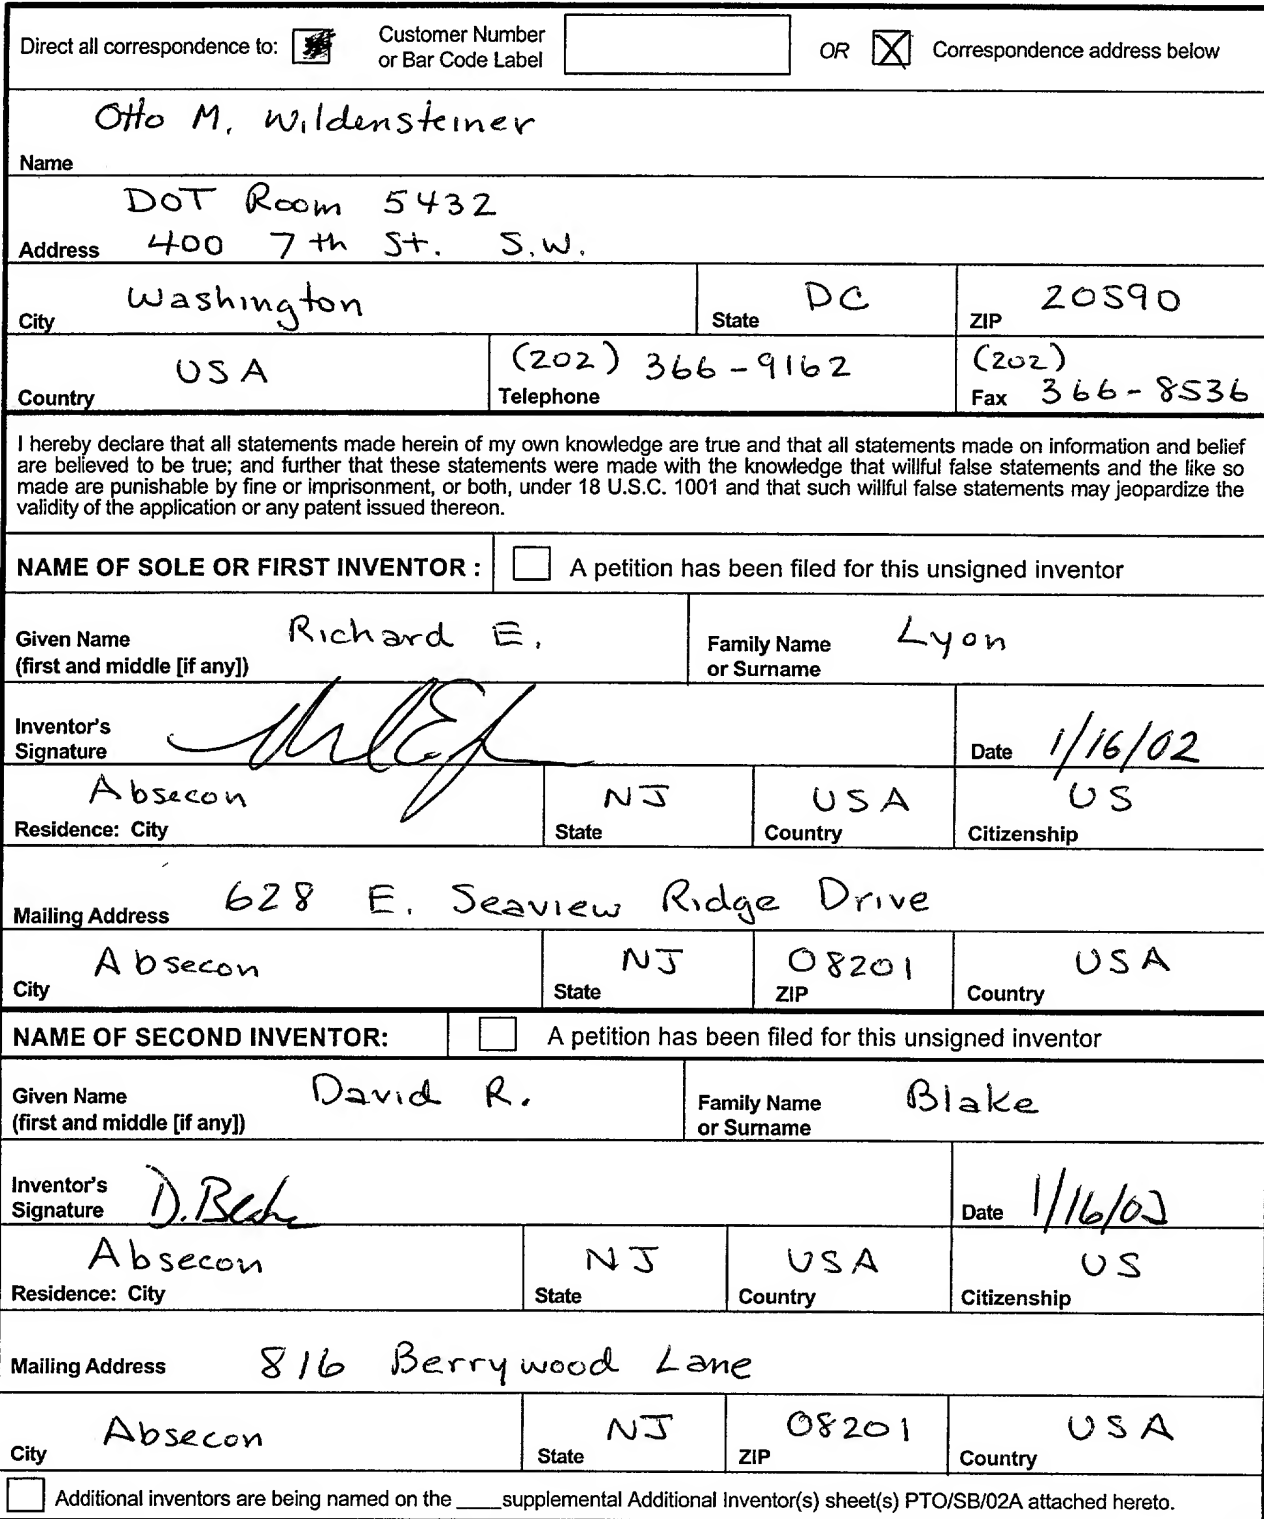 Direct all correspondence to: Customer Number OR Correspondence address below
or Bar Code Label
Otto M. Wildensteiner
Name
DOT Room 5432
Address 400 7th St. S.W.
Washington DC 20590
City State ZIP
USA (202) 366-9162 (202)
Country Telephone Fax 366-8536
I hereby declare that all statements made herein of my own knowledge are true and that all statements made on information and belief
are believed to be true; and further that these statements were made with the knowledge that willful false statements and the like so
made are punishable by fine or imprisonment, or both, under 18 U.S.C. 1001 and that such willful false statements may jeopardize the
validity of the application or any patent issued thereon.
NAME OF SOLE OR FIRST INVENTOR : A petition has been filed for this unsigned inventor
Given Name Richard E. Family Name Lyon
(first and middle [if any]) or Surname
Inventor's
Signature Date 1/16/02
Absecon NJ USA US
Residence: City State Country Citizenship
Mailing Address 628 E. Seaview Ridge Drive
Absecon NJ 08201 USA
City State ZIP Country
NAME OF SECOND INVENTOR: A petition has been filed for this unsigned inventor
Given Name David R. Family Name Blake
(first and middle [if any]) or Surname
Inventor's D. Blake
Signature Date 1/16/02
Absecon NJ USA US
Residence: City State Country Citizenship
Mailing Address 816 Berrywood Lane
Absecon NJ 08201 USA
City State ZIP Country
Additional inventors are being named on the ____supplemental Additional Inventor(s) sheet(s) PTO/SB/02A attached hereto.